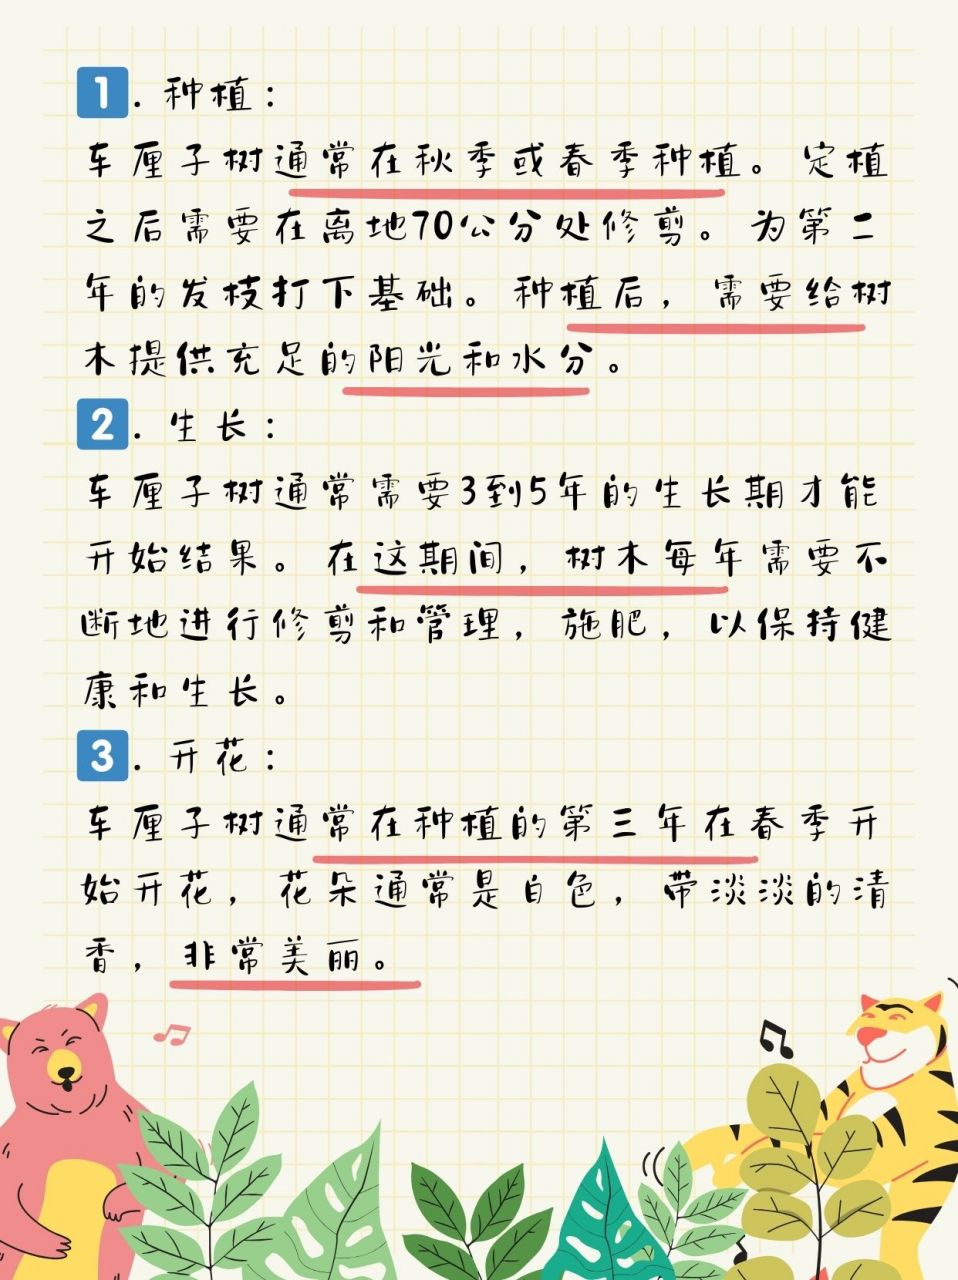 1. 种植：
车厘子树通常在秋季或春季种植。定植
之后需要在离地70公分处修剪。为第二
年的发枝打下基础。种植后，需要给树
木提供充足的阳光和水分。
2. 生长：
车厘子树通常需要3到5年的生长期才能
开始结果。在这期间，树木每年需要不
断地进行修剪和管理，施肥，以保持健
康和生长。
3. 开花：
车厘子树通常在种植的第三年在春季开
始开花，花朵通常是白色，带淡淡的清
香，非常美丽。